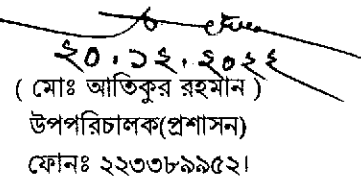 ২০.১২.২০২২
( মোঃ আতিকুর রহমান )
উপপরিচালক(প্রশাসন)
ফোনঃ ২২৩৩৮৯৯৫২।